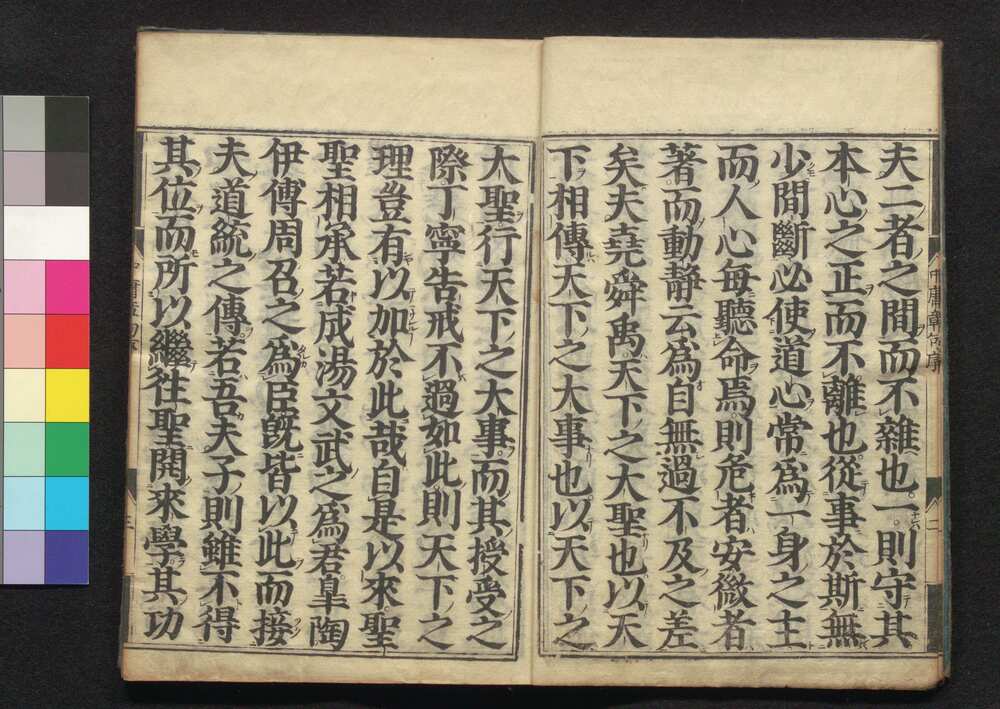 夫二者之間而不雜也一則守其
本心之正而不離也從事於斯無
少間斷必使道心常爲一身之主
而人心每聽命焉則危者安微者
著而動靜云爲自無過不及之差
矣夫堯舜禹天下之大聖也以天
下相傳天下之大事也以天下之
大聖行天下之大事而其授受之
際丁寧告戒不過如此則天下之
理豈有以加於此哉自是以來聖
聖相承若成湯文武之爲君皐陶
伊傅周召之爲臣既皆以此而接
夫道統之傳若吾夫子則雖不得
其位而所以繼往聖開來學其功